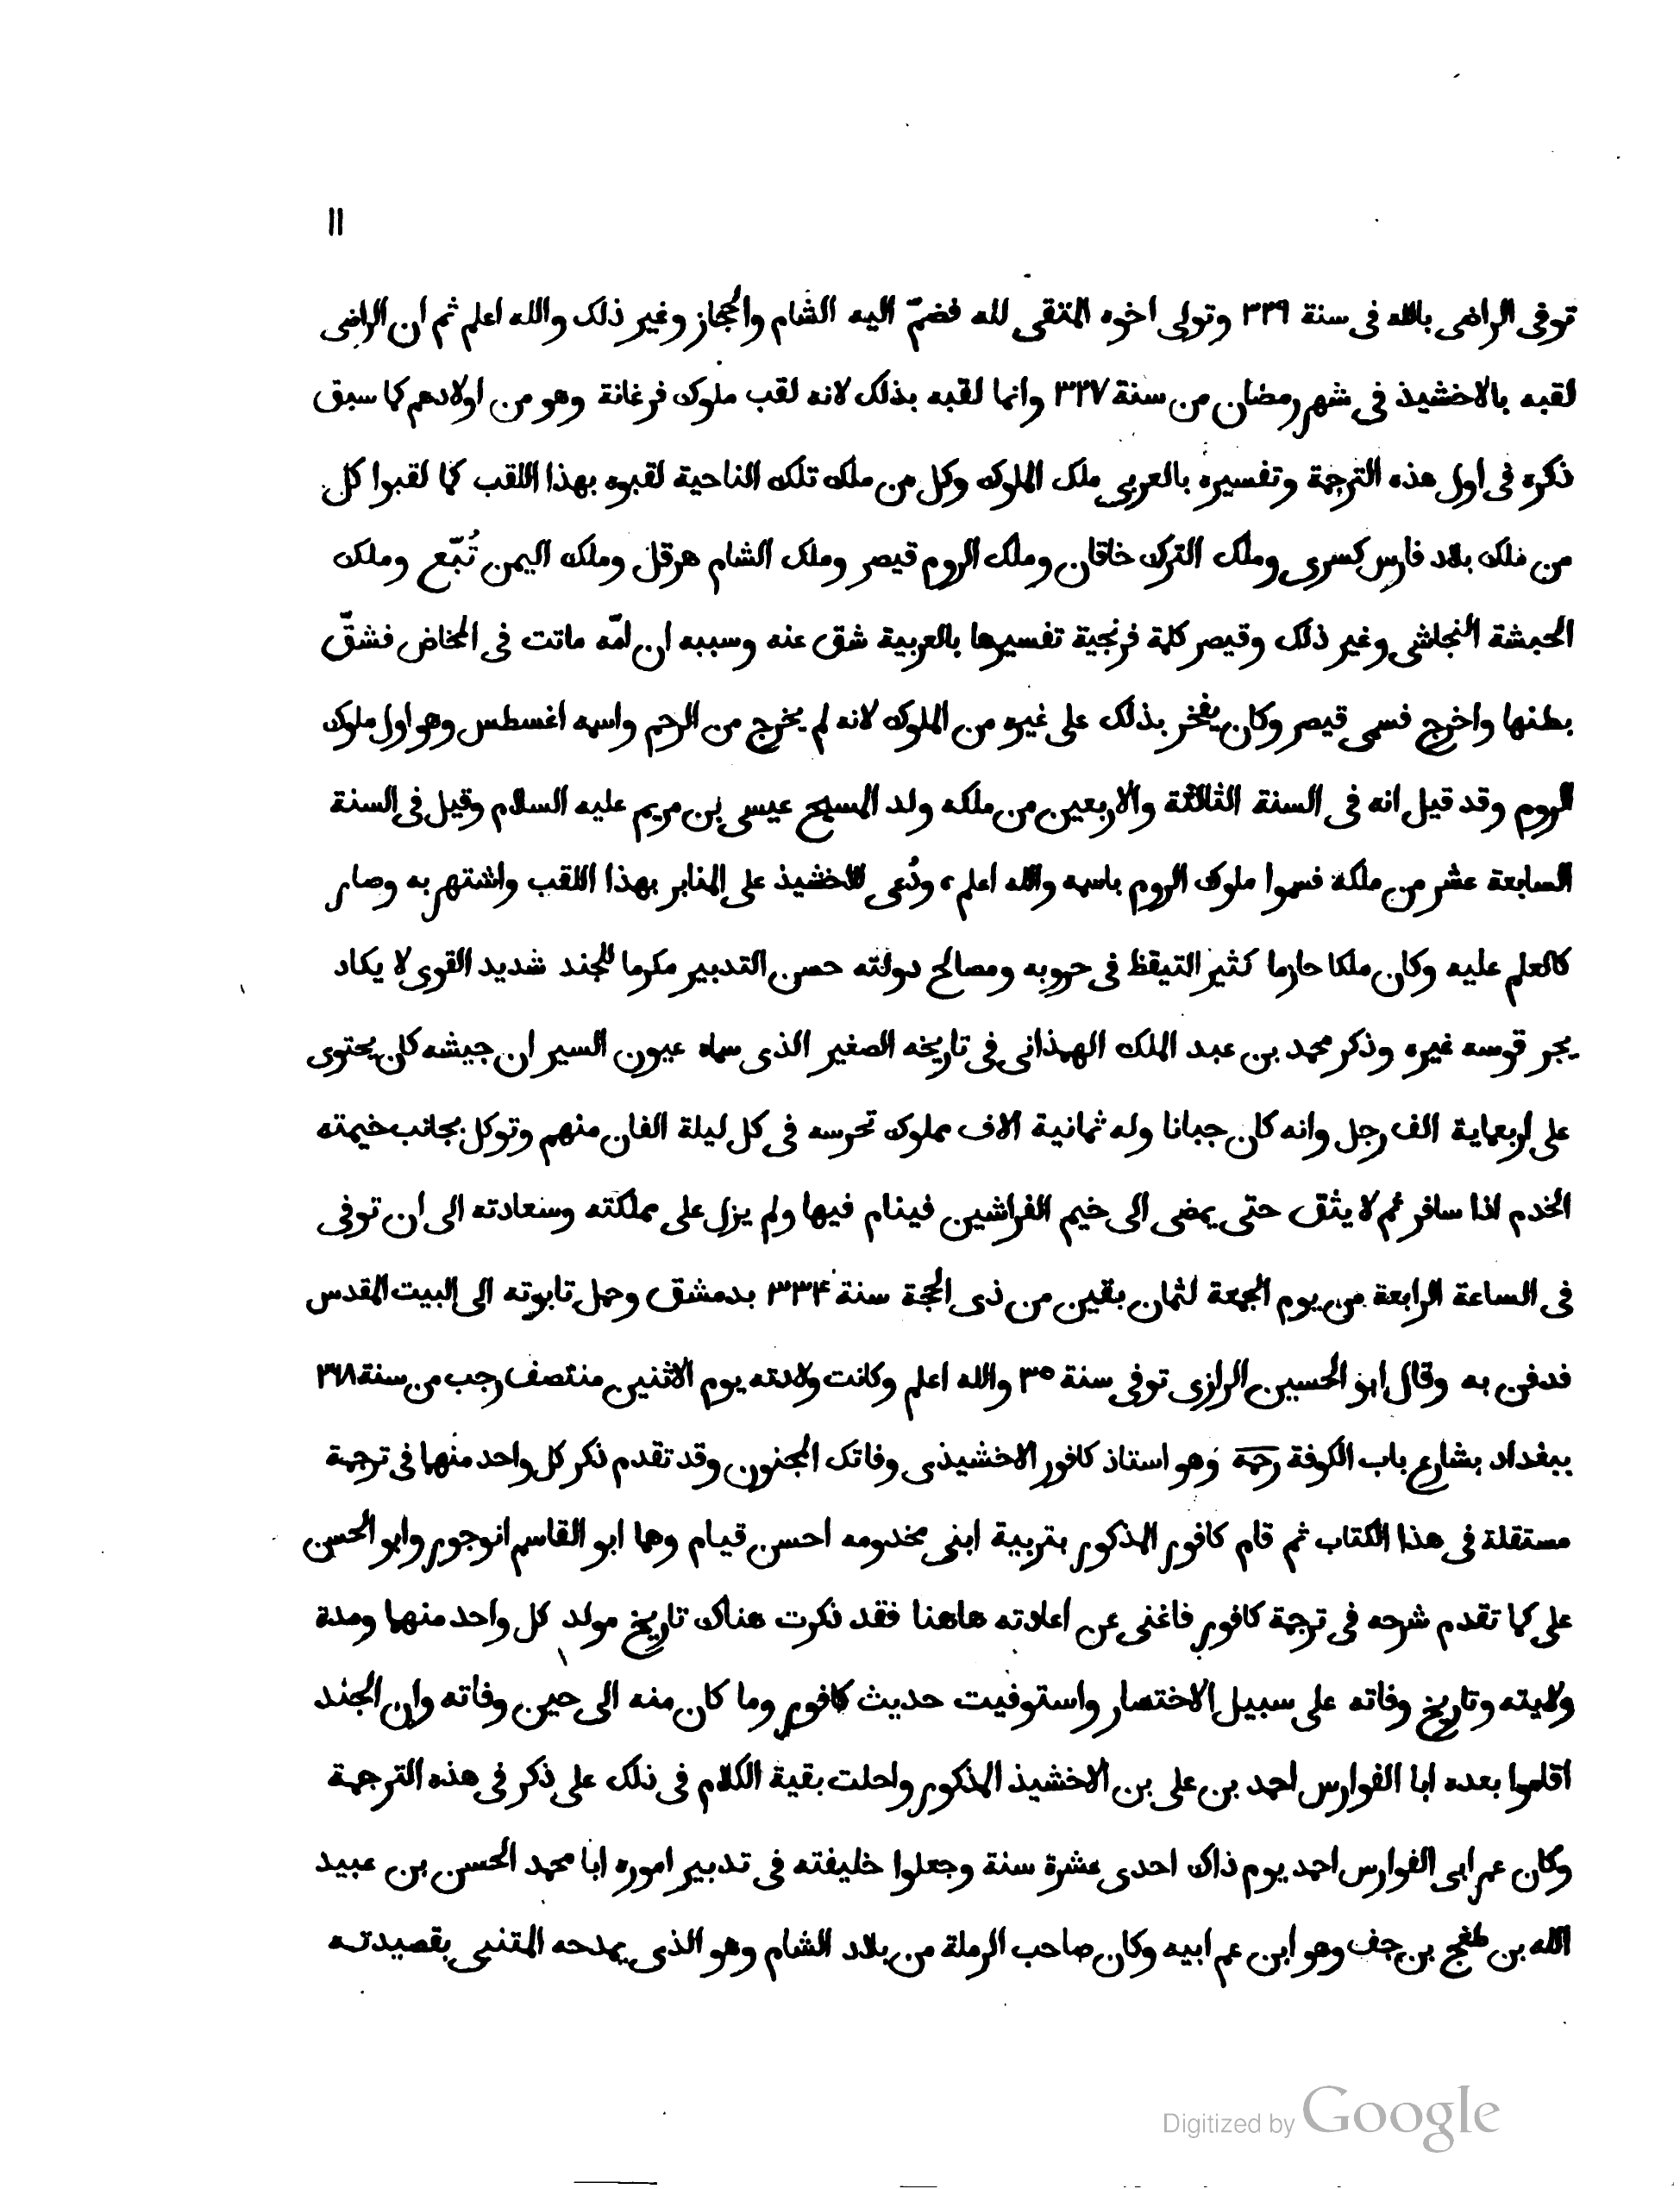 ١١
توفى الراضى بالله فى سنة ٣٢٩ وتولى اخوه المتقى لله فضمّ اليه الشام والحجاز وغير ذلك والله اعلم ثم ان الراضى
لقبه بالاخشيذ فى شهر رمضان من سنة ٣٢٧ وانما لقبه بذلك لانه لقب ملوك فرغانة وهو من اولادهم كما سبق
ذكره فى اول هذه الترجمة وتفسيره بالعربى ملك الملوك وكل من ملك تلك الناحية لقبوه بهذا اللقب كما لقبوا كل
من ملك بلاد فارس كسرى وملك الترك خاقان وملك الروم قيصر وملك الشام هرقل وملك اليمن تُبّع وملك
الحبشة النجاشى وغير ذلك وقيصر كلمة فرنجية تفسيرها بالعربية شق عنه وسببه ان امّه ماتت فى المخاض فشقّ
بطنها واخرج فسمى قيصر وكان يفخر بذلك على غيره من الملوك لانه لم يخرج من الرحم واسمه اغسطس وهو اول ملوك
الروم وقد قيل انه فى السنة الثالثة والاربعين من ملكه ولد المسيح عيسى بن مريم عليه السلام وقيل فى السنة
السابعة عشر من ملكه فسموا ملوك الروم باسمه والله اعلم، ودُعى للاخشيذ على المنابر بهذا اللقب واشتهر به وصار
كالعلم عليه وكان ملكا حازما كثير التيقظ فى حروبه ومصالح دولته حسن التدبير مكرما للجند شديد القوى لا يكاد
يجر قوسه غيره وذكر محمد بن عبد الملك الهمذانى فى تاريخه الصغير الذى سماه عيون السير ان جيشه كان يحتوى
على اربعماية الف رجل وانه كان جبانا وله ثمانية الاف مملوك تحرسه فى كل ليلة الفان منهم وتوكل بجانب خيمته
الخدم اذا سافر ثم لا يثق حتى يمضى الى خيم الفراشين فينام فيها ولم يزل على مملكته وسعادته الى ان توفى
فى الساعة الرابعة من يوم الجمعة لثمان بقين من ذى الحجة سنة ٣٣۴ بدمشق وحمل تابوته الى البيت المقدس
فدفن به وقال ابو الحسين الرازى توفى سنة ٣٥ والله اعلم وكانت ولادته يوم الاثنين منتصف رجب من سنة ٢٦٨
ببغداد بشارع باب الكوفة رحمه وهو استاذ كافور الاخشيذى وفاتك المجنون وقد تقدم ذكر كل واحد منهما فى ترجمة
مستقلة فى هذا الكتاب ثم قام كافور المذكور بتربية ابنى مخدومه احسن قيام وهما ابو القاسم انوجور وابو الحسن
على كما تقدم شرحه فى ترجمة كافور فاغنى عن اعادته هاهنا فقد ذكرت هناك تاريخ مولد كل واحد منهما ومدة
ولايته وتاريخ وفاته على سبيل الاختصار واستوفيت حديث كافور وما كان منه الى حين وفاته وان الجند
اقاموا بعده ابا الفوارس احمد بن على بن الاخشيذ المذكور واحلت بقية الكلام فى ذلك على ذكر فى هذه الترجمة
وكان عمر ابى الفوارس احمد يوم ذاك احدى عشرة سنة وجعلوا خليفته فى تدبير اموره ابا محمد الحسن بن عبيد
الله بن طغج بن جف وهو ابن عم ابيه وكان صاحب الرملة من بلاد الشام وهو الذى يمدحه المتنبى بقصيدته
Digitized by Google